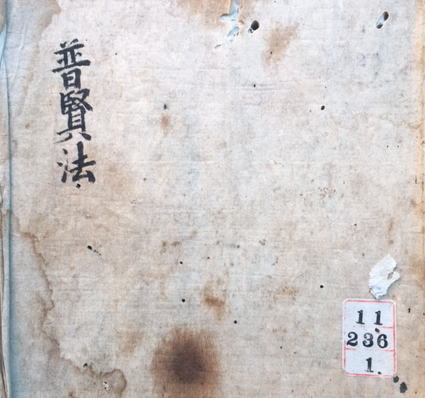 普賢法
11
236
1.